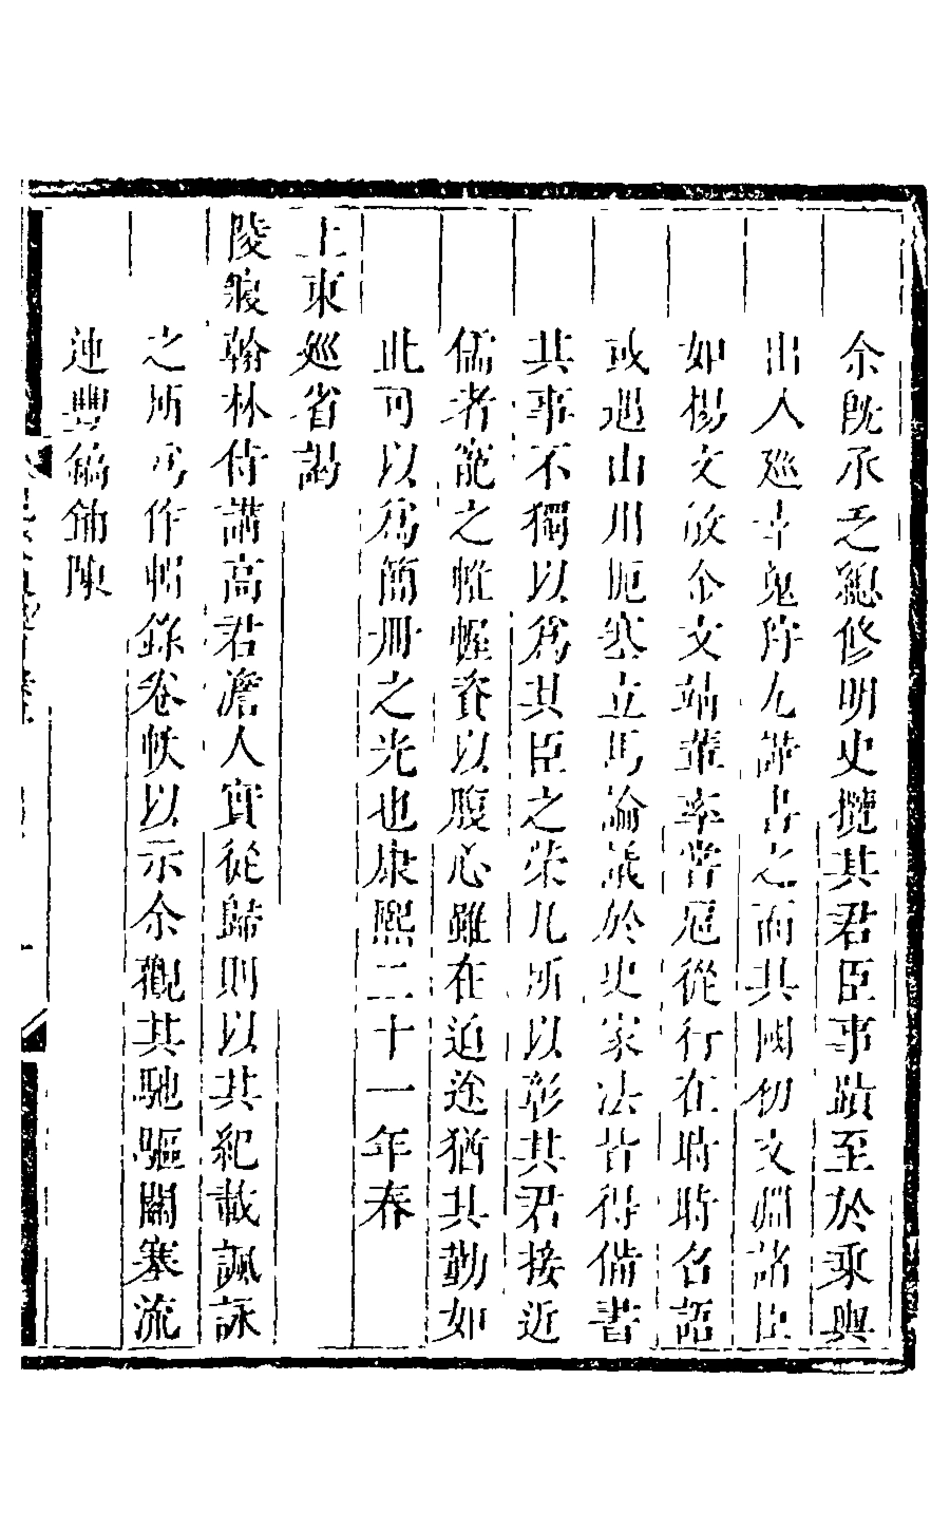 余旣承乏總修明史攬其君臣事蹟至於乘輿
出入巡幸鬼狩尢謹書之而其國初文淵諸臣
如楊文敏金文靖輩率嘗扈從行在時時名語
或遇山川阨塞立馬論議於史家法皆得備書
其事不獨以爲其臣之榮凡所以彰其君接近
儒者寵之帷幄資以腹心雖在迫途猶其勤如
此可以爲簡冊之光也康熙二十一年春
上東巡省謁
陵寢翰林侍講高君澹人實從歸則以其紀載諷詠
之所爲作輯錄卷帙以示余觀其馳驅關塞流
連豐鎬鋪陳